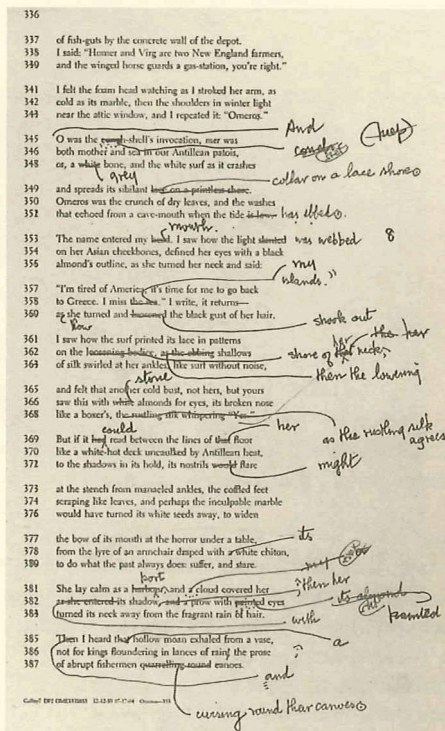 336
337 of fish-guts by the concrete wall of the depot.
338 I said: "Homer and Virg are two New England farmers,
339 and the winged horse guards a gas-station, you're right."
341 I felt the foam head watching as I stroked her arm, as
342 cold as its marble, then the shoulders in winter light
343 near the attic window, and I repeated it: "Omeros."
And
345 O was the conch-shell's invocation, mer was
conch (keep)
346 both mother and sea in our Antillean patois,
348 os, a white bone, and the white surf as it crashes
grey
collar on a lace shore
349 and spreads its sibilant lace on a printless shore.
350 Omeros was the crunch of dry leaves, and the washes
352 that echoed from a cave-mouth when the tide is low. has ebbed
mouth.
353 The name entered my head. I saw how the light slanted was webbed 8
354 on her Asian cheekbones, defined her eyes with a black
356 almond's outline, as she turned her neck and said:
my islands."
357 "I'm tired of America, it's time for me to go back
358 to Greece. I miss the sea." I write, it returns—
360 as she turned and loosened the black gust of her hair.
how
shook out
361 I saw how the surf printed its lace in patterns
362 on the loosening bodice, as the ebbing shallows
shore of her neck,
364 of silk swirled at her ankles, like surf without noise,
then the lowering
stone
365 and felt that another cold bust, not hers, but yours
366 saw this with white almonds for eyes, its broken nose
368 like a boxer's, the rustling silk whispering "Yes."
as the rustling silk agrees
could
her
369 But if it had read between the lines of that floor
370 like a white-hot deck uncaulked by Antillean heat,
372 to the shadows in its hold, its nostrils would flare
might
373 at the stench from manacled ankles, the coffled feet
374 scraping like leaves, and perhaps the inculpable marble
376 would have turned its white seeds away, to widen
377 the bow of its mouth at the horror under a table,
its
378 from the lyre of an armchair draped with a white chiton,
380 to do what the past always does: suffer, and stare.
port
381 She lay calm as a harbour, and a cloud covered her
then her
382 as she entered its shadow, and a prow with painted eyes
its almond
painted
383 turned its neck away from the fragrant rain of hair.
with
385 Then I heard that hollow moan exhaled from a vase,
a
386 not for kings floundering in lances of rain; the prose
387 of abrupt fishermen quarrelling round canoes.
and
cursing round their canoes